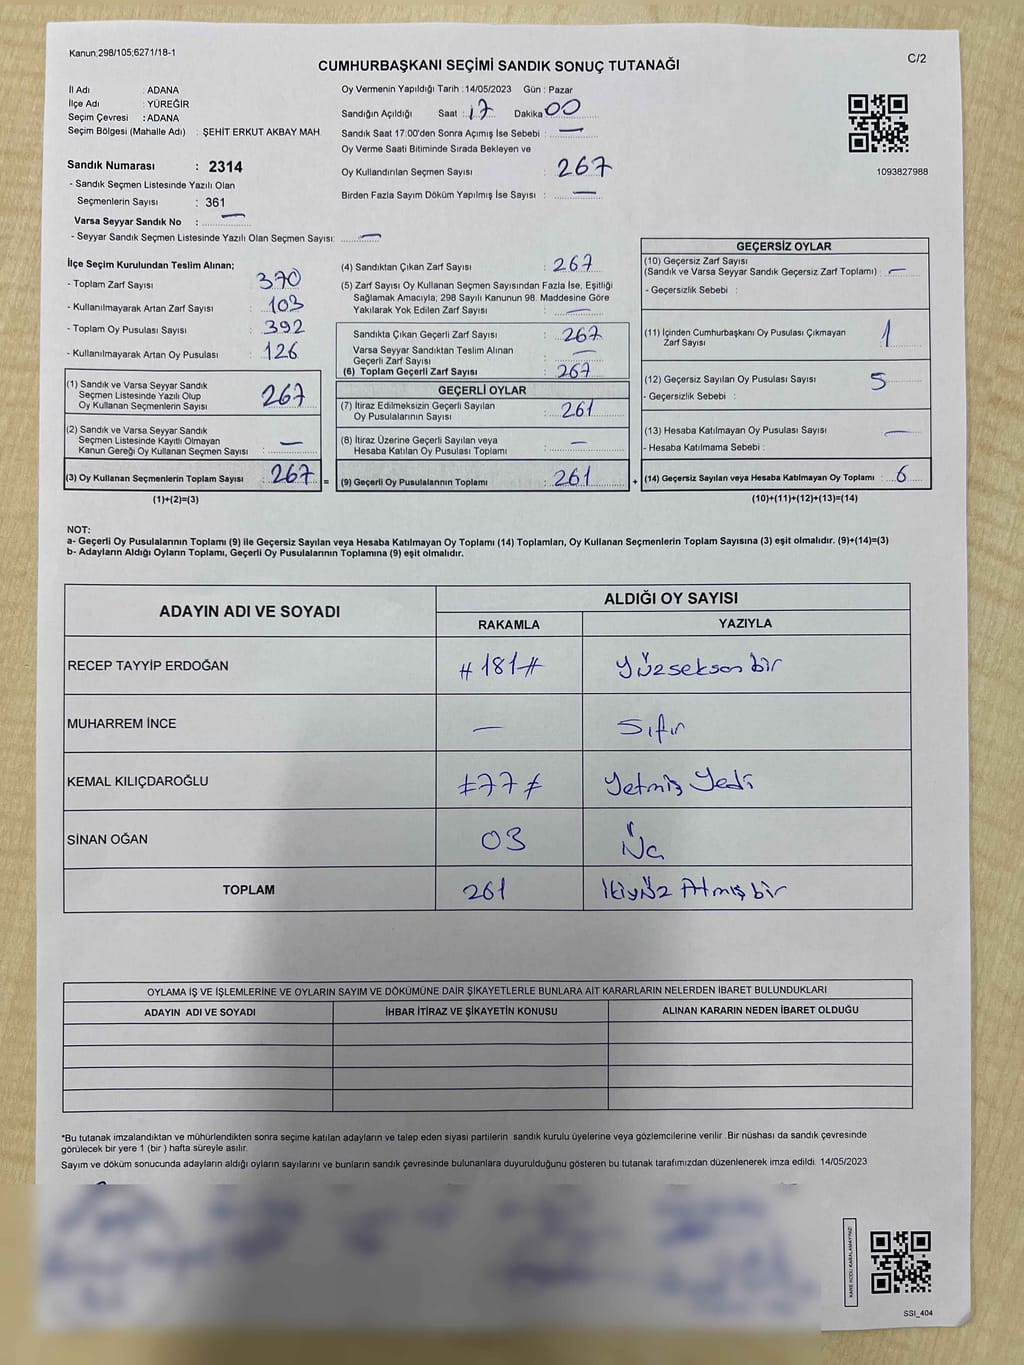 Kanun;298/105;6271/18-1
C/2
CUMHURBAŞKANI SEÇİMİ SANDIK SONUÇ TUTANAĞI
İl Adı : ADANA
İlçe Adı : YÜREĞİR
Seçim Çevresi : ADANA
Seçim Bölgesi (Mahalle Adı) : ŞEHİT ERKUT AKBAY MAH.
Oy Vermenin Yapıldığı Tarih : 14/05/2023 Gün : Pazar
Sandığın Açıldığı Saat : 17 Dakika 00
Sandık Saat 17:00'den Sonra Açımış İse Sebebi : —
Oy Verme Saati Bitiminde Sırada Bekleyen ve
Oy Kullandırılan Seçmen Sayısı : 267
Birden Fazla Sayım Döküm Yapılmış İse Sayısı : —
1093827988
Sandık Numarası : 2314
- Sandık Seçmen Listesinde Yazılı Olan
Seçmenlerin Sayısı : 361
Varsa Seyyar Sandık No : —
- Seyyar Sandık Seçmen Listesinde Yazılı Olan Seçmen Sayısı: —
İlçe Seçim Kurulundan Teslim Alınan;
- Toplam Zarf Sayısı : 370
- Kullanılmayarak Artan Zarf Sayısı : 103
- Toplam Oy Pusulası Sayısı : 392
- Kullanılmayarak Artan Oy Pusulası : 126
(1) Sandık ve Varsa Seyyar Sandık
Seçmen Listesinde Yazılı Olup
Oy Kullanan Seçmenlerin Sayısı : 267
(2) Sandık ve Varsa Seyyar Sandık
Seçmen Listesinde Kayıtlı Olmayan
Kanun Gereği Oy Kullanan Seçmen Sayısı : —
(3) Oy Kullanan Seçmenlerin Toplam Sayısı : 267 =
(1)+(2)=(3)
(4) Sandıktan Çıkan Zarf Sayısı : 267
(5) Zarf Sayısı Oy Kullanan Seçmen Sayısından Fazla İse, Eşitliği
Sağlamak Amacıyla; 298 Sayılı Kanunun 98. Maddesine Göre
Yakılarak Yok Edilen Zarf Sayısı : —
Sandıkta Çıkan Geçerli Zarf Sayısı : 267
Varsa Seyyar Sandıktan Teslim Alınan
Geçerli Zarf Sayısı : —
(6) Toplam Geçerli Zarf Sayısı : 267
GEÇERLİ OYLAR
(7) İtiraz Edilmeksizin Geçerli Sayılan
Oy Pusulalarının Sayısı : 261
(8) İtiraz Üzerine Geçerli Sayılan veya
Hesaba Katılan Oy Pusulası Toplamı : —
(9) Geçerli Oy Pusulalarının Toplamı : 261 +
GEÇERSİZ OYLAR
(10) Geçersiz Zarf Sayısı
(Sandık ve Varsa Seyyar Sandık Geçersiz Zarf Toplamı) : —
- Geçersizlik Sebebi :
(11) İçinden Cumhurbaşkanı Oy Pusulası Çıkmayan
Zarf Sayısı : 1
(12) Geçersiz Sayılan Oy Pusulası Sayısı : 5
- Geçersizlik Sebebi :
(13) Hesaba Katılmayan Oy Pusulası Sayısı : —
- Hesaba Katılmama Sebebi :
(14) Geçersiz Sayılan veya Hesaba Katılmayan Oy Toplamı : 6
(10)+(11)+(12)+(13)=(14)
NOT:
a- Geçerli Oy Pusulalarının Toplamı (9) ile Geçersiz Sayılan veya Hesaba Katılmayan Oy Toplamı (14) Toplamları, Oy Kullanan Seçmenlerin Toplam Sayısına (3) eşit olmalıdır. (9)+(14)=(3)
b- Adayların Aldığı Oyların Toplamı, Geçerli Oy Pusulalarının Toplamına (9) eşit olmalıdır.
ADAYIN ADI VE SOYADI
ALDIĞI OY SAYISI
RAKAMLA YAZIYLA
RECEP TAYYİP ERDOĞAN #181# Yüzseksen bir
MUHARREM İNCE — Sıfır
KEMAL KILIÇDAROĞLU #77# Yetmiş Yedi
SİNAN OĞAN 03 Üç
TOPLAM 261 İkiyüz Atmış bir
OYLAMA İŞ VE İŞLEMLERİNE VE OYLARIN SAYIM VE DÖKÜMÜNE DAİR ŞİKAYETLERLE BUNLARA AİT KARARLARIN NELERDEN İBARET BULUNDUKLARI
ADAYIN ADI VE SOYADI İHBAR İTİRAZ VE ŞİKAYETİN KONUSU ALINAN KARARIN NEDEN İBARET OLDUĞU
*Bu tutanak imzalandıktan ve mühürlendikten sonra seçime katılan adayların ve talep eden siyasi partilerin sandık kurulu üyelerine veya gözlemcilerine verilir. Bir nüshası da sandık çevresinde
görülecek bir yere 1 (bir ) hafta süreyle asılır.
Sayım ve döküm sonucunda adayların aldığı oyların sayılarını ve bunların sandık çevresinde bulunanlara duyurulduğunu gösteren bu tutanak tarafımızdan düzenlenerek imza edildi. 14/05/2023
KARE KODU KARALAMAYINIZ!
SSI_404